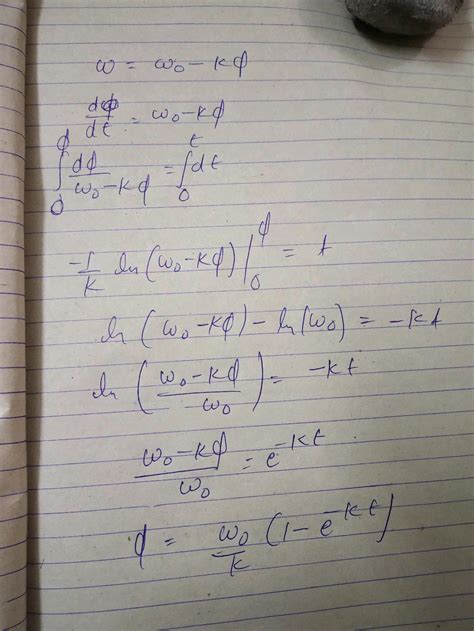 ω = ω₀ − kϕ
dϕ/dt = ω₀ − kϕ
∫₀^ϕ dϕ/(ω₀ − kϕ) = ∫₀^t dt
−1/k ln(ω₀ − kϕ)|₀^ϕ = t
ln(ω₀ − kϕ) − ln(ω₀) = −kt
ln((ω₀ − kϕ)/ω₀) = −kt
(ω₀ − kϕ)/ω₀ = e^−kt
ϕ = ω₀/k (1 − e^−kt)